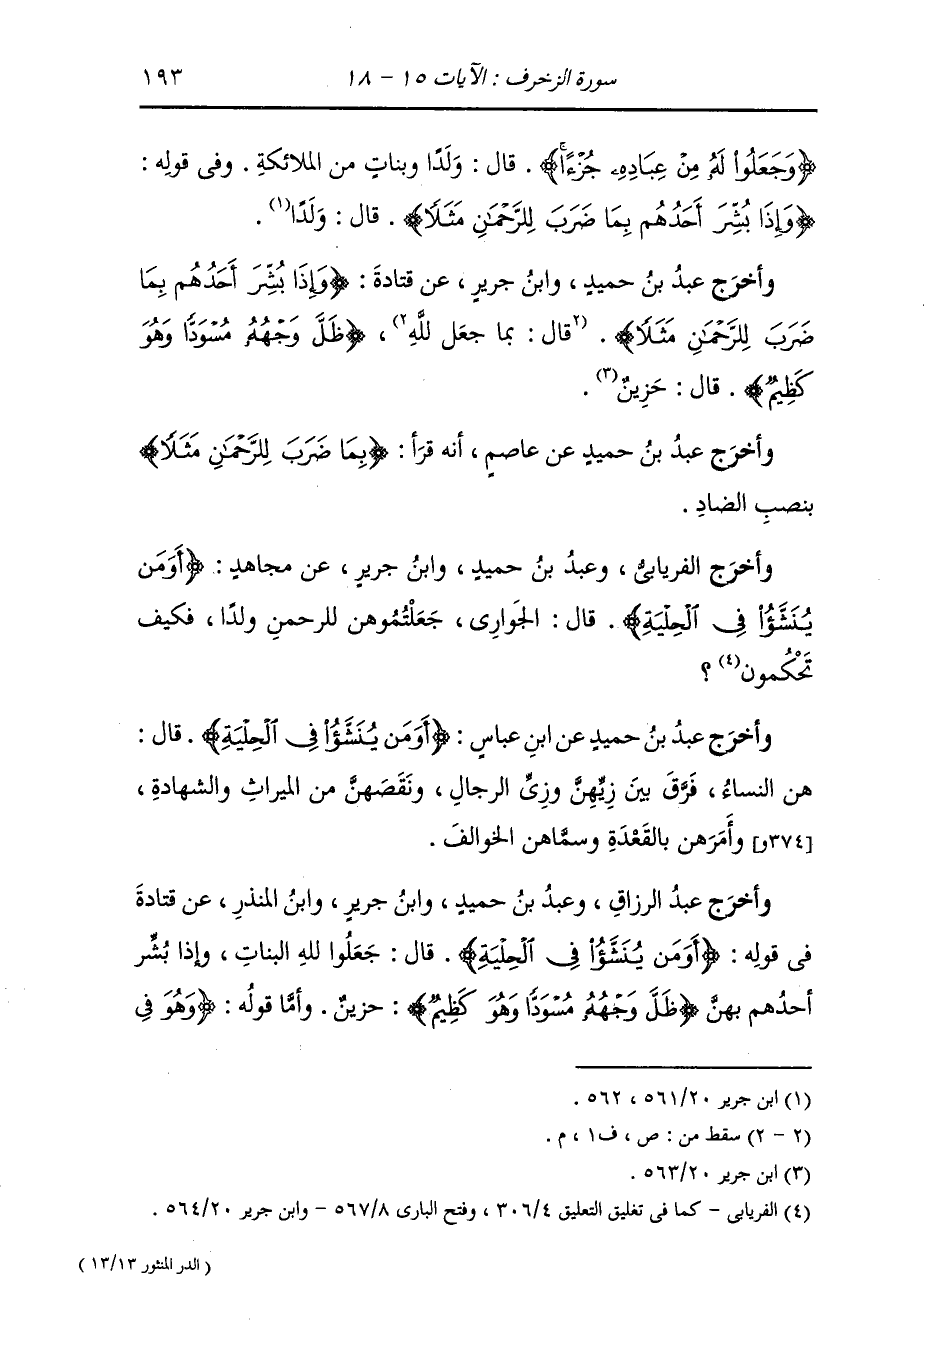 سورة الزخرف : الآيات ١٥ - ١٨
١٩٣
﴿وَجَعَلُوا۟ لَهُۥ مِنْ عِبَادِهِۦ جُزْءًا﴾ . قال : وَلَدًا وبناتٍ من الملائكةِ . وفى قولِه :
﴿وَإِذَا بُشِّرَ أَحَدُهُم بِمَا ضَرَبَ لِلرَّحْمَٰنِ مَثَلًا﴾ . قال : وَلَدًا(١) .
وأخرَج عبدُ بنُ حميدٍ ، وابنُ جريرٍ ، عن قتادةَ : ﴿وَإِذَا بُشِّرَ أَحَدُهُم بِمَا
ضَرَبَ لِلرَّحْمَٰنِ مَثَلًا﴾ . (٢قال : بما جعَل للَّهِ٢) ، ﴿ظَلَّ وَجْهُهُۥ مُسْوَدًّا وَهُوَ
كَظِيمٌ﴾ . قال : حَزِينٌ(٣) .
وأخرَج عبدُ بنُ حميدٍ عن عاصمٍ ، أنه قرَأ : ﴿بِمَا ضَرَبَ لِلرَّحْمَٰنِ مَثَلًا﴾
بنصبِ الضادِ .
وأخرَج الفريابىُّ ، وعبدُ بنُ حميدٍ ، وابنُ جريرٍ ، عن مجاهدٍ : ﴿أَوَمَن
يُنَشَّؤُا۟ فِى ٱلْحِلْيَةِ﴾ . قال : الجَوارِى ، جَعَلْتُمُوهن للرحمنِ ولدًا ، فكيف
تَحْكُمون(٤) ؟
وأخرَج عبدُ بنُ حميدٍ عن ابنِ عباسٍ : ﴿أَوَمَن يُنَشَّؤُا۟ فِى ٱلْحِلْيَةِ﴾ . قال :
هن النساءُ ، فَرَّقَ بينَ زِيِّهِنَّ وزِىِّ الرجالِ ، ونَقَصَهنَّ من الميراثِ والشهادةِ ،
[٣٧٤و] وأَمَرَهن بالقَعْدَةِ وسمَّاهن الخوالفَ .
وأخرَج عبدُ الرزاقِ ، وعبدُ بنُ حميدٍ ، وابنُ جريرٍ ، وابنُ المنذرِ ، عن قتادةَ
فى قولِه : ﴿أَوَمَن يُنَشَّؤُا۟ فِى ٱلْحِلْيَةِ﴾ . قال : جَعَلُوا للهِ البناتِ ، وإذا بُشِّر
أحدُهم بهنَّ ﴿ظَلَّ وَجْهُهُۥ مُسْوَدًّا وَهُوَ كَظِيمٌ﴾ : حزينٌ . وأمَّا قولُه : ﴿وَهُوَ فِى
(١) ابن جرير ٢٠/ ٥٦١ ، ٥٦٢ .
(٢ - ٢) سقط من : ص ، ف١ ، م .
(٣) ابن جرير ٢٠/ ٥٦٣ .
(٤) الفريابى - كما فى تغليق التعليق ٤/ ٣٠٦ ، وفتح البارى ٨/ ٥٦٧ - وابن جرير ٢٠/ ٥٦٤ .
( الدر المنثور ١٣/١٣ )